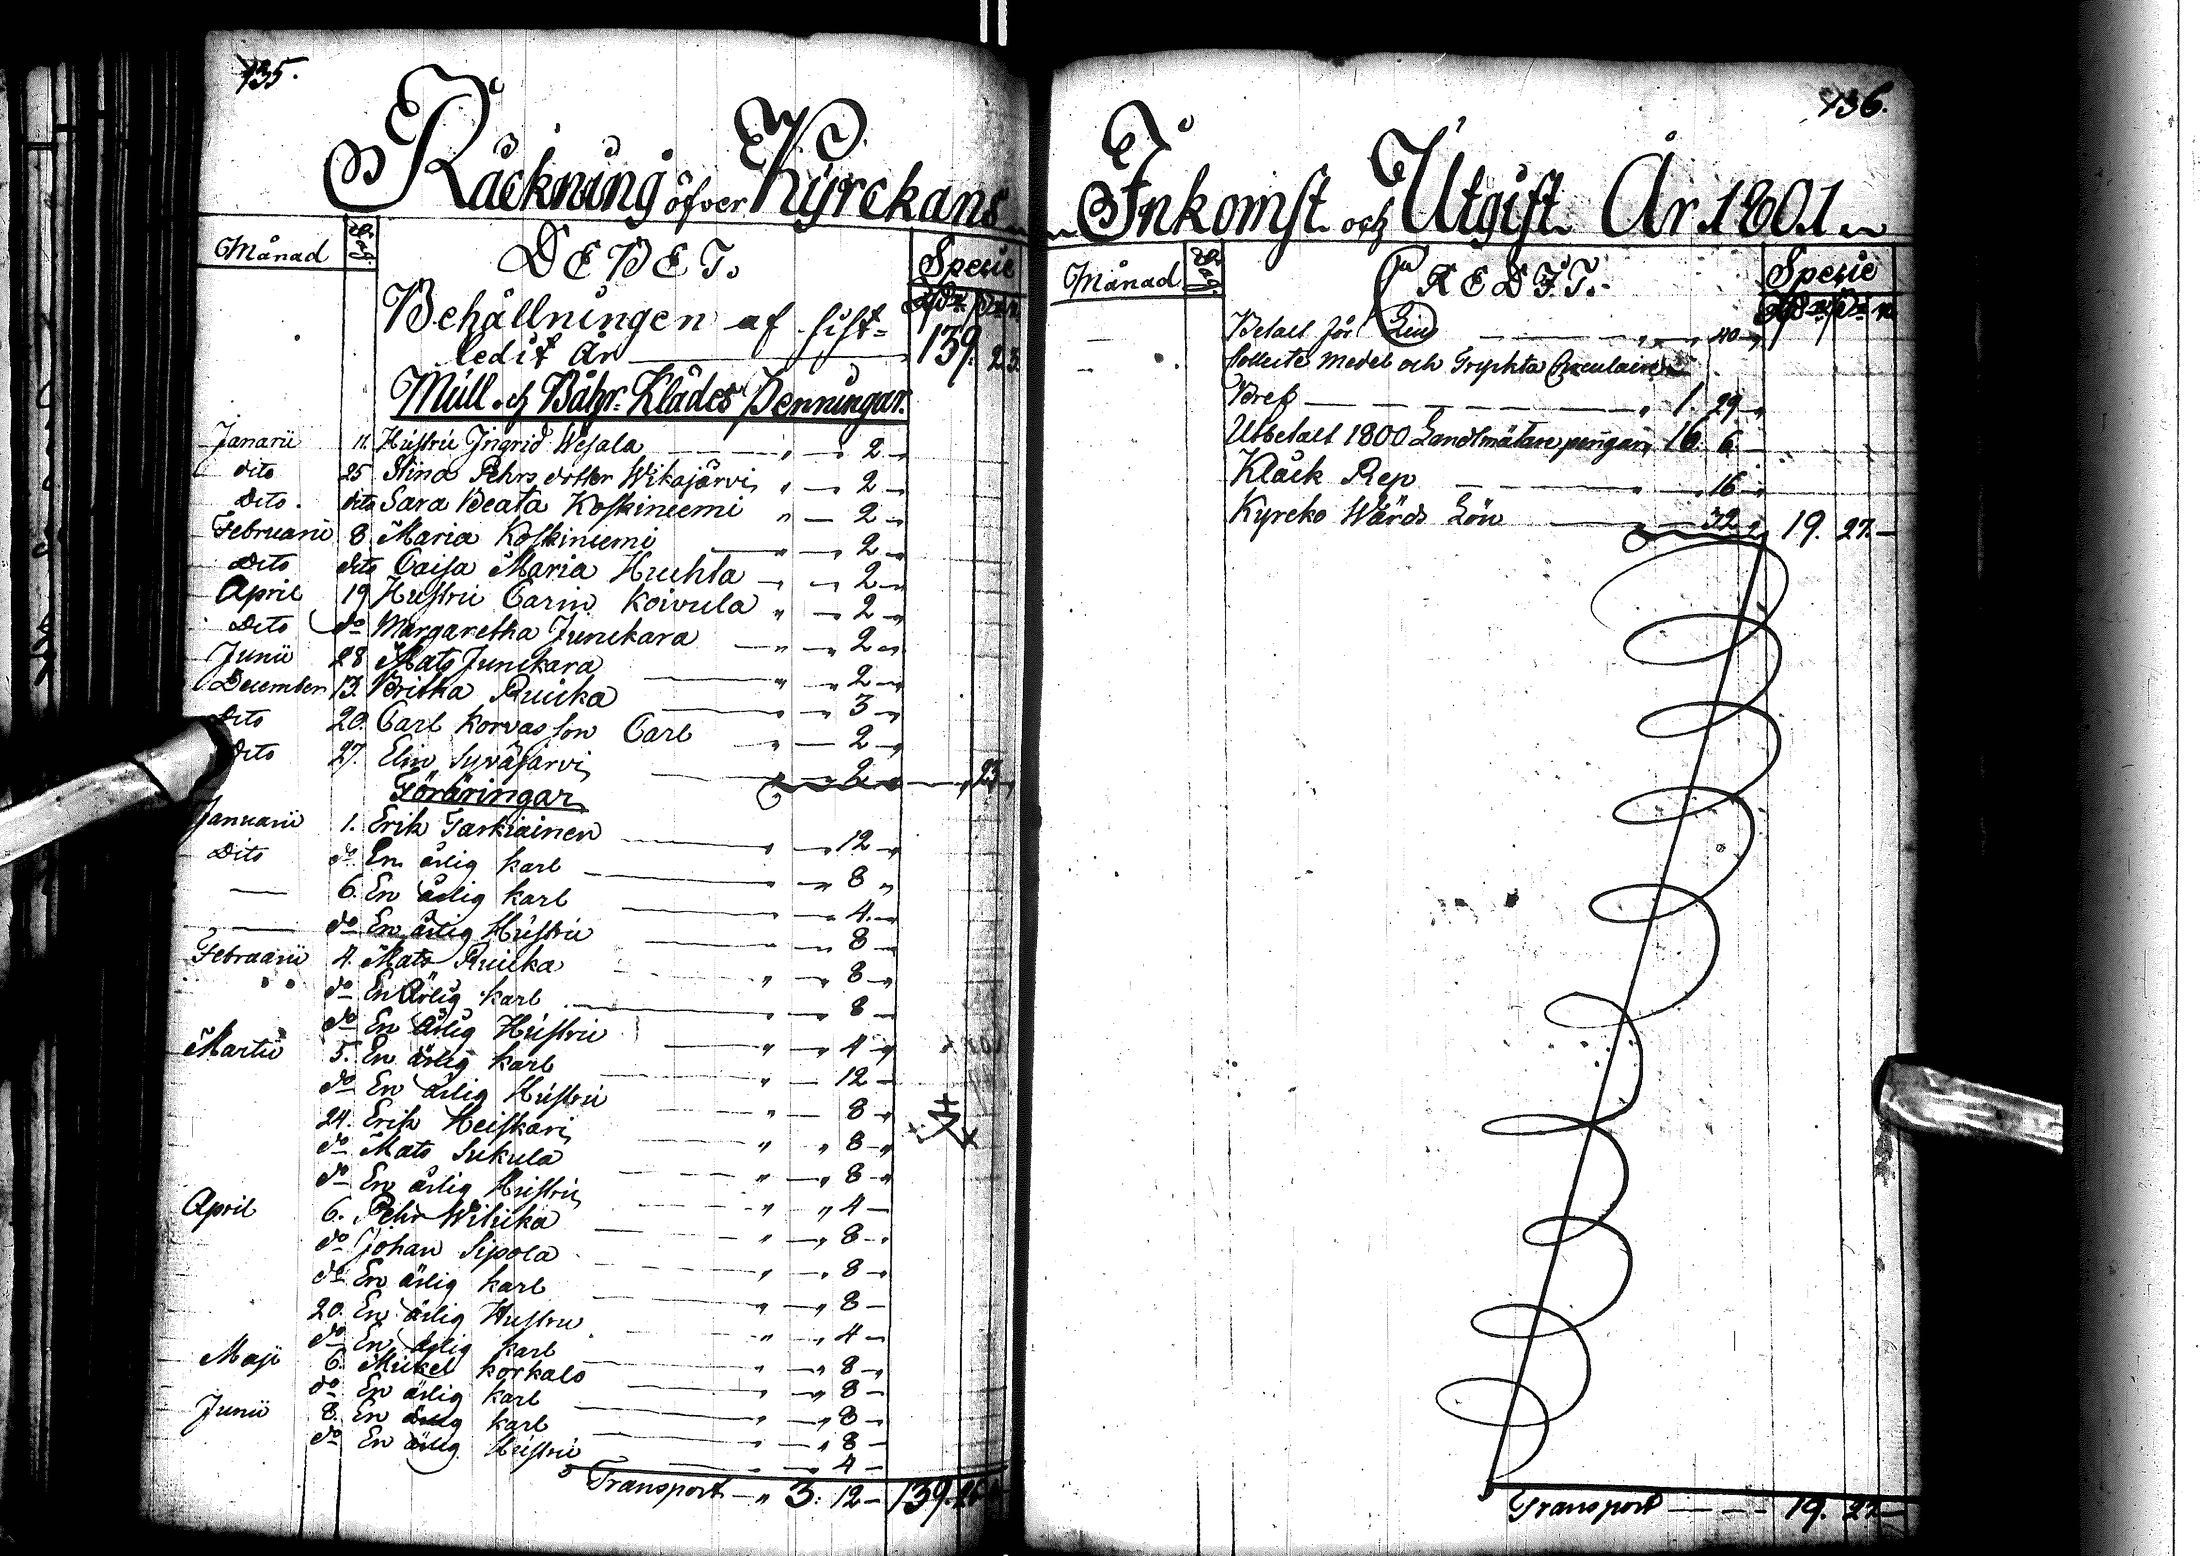 135.
Räckning öfver Kyrckans
Månad Dag. DEBET. Spesie
Behållningen af sist-
ledit år 139. 23.
Mull och Båhr-Klädes Penningar.
Januarii 11. Hustru Ingrid Wesala " — 2 —
dito 25 Stina Pehrs dotter Wikajärvi " — 2 —
Dito. dito Sara Beata Koskiniemi " — 2 —
Februarii 8. Maria Koskiniemi " — 2 —
Dito dito Caisa Maria Huhta " — 2 —
April 19 Hustru Carin Koivula " — 2 —
Dito do Margaretha Junckara " — 2 —
Junii 28 Mats Junckara " — 2 —
December 13. Britha Ruicka " — 3 —
Dito 20. Carl Korvas son Carl " — 2 —
Dito 27. Elin Syväjärvi — 2 — 23 —
Föräringar
Januarii 1. Erik Tarkiainen " — 12 —
Dito do En ärlig karl " — 8 "
— 6. En ärlig karl " — 4 —
— do En ärlig Hustru " — 8 —
Februarii 4. Mats Ruicka " — 8 —
do En Ärlig karl " — 8 —
do En Ärlig Hustru " — 4 —
Martii 5. En ärlig karl " — 12 —
do En ärlig Hustru " — 8 —
24. Erik Heiskari " " 8 —
do Mats Sukula " " 8 —
do En ärlig Hustru " " 4 —
April 6. Pehr Wilucka " — 8 —
do Johan Sipola " — 8 —
do En ärlig karl " — 8 —
20. En ärlig Hustru " " 4 —
do En ärlig karl " — 8 —
Maji 6. Mickel Korkalo " — 8 —
do En ärlig karl " — 8 —
Junii 8. En ärlig karl " — 8 —
do En ärlig Hustru — 4 —
Transport — " 3. 12 — 139.
136.
Inkomst och Utgift År 1801
Månad Dag. CREDIT. Spesie
Betalt för " — 40 —
Collecte medel och Tryckta Circulaire
Bref " 1. 29 "
Utbetalt 1800 Landtmätare pengar 16. 6 —
Kläck Rep " — 16 —
Kyrcko Wärds Lön — 32 — 19. 27. —
Transport — 19. 27 —